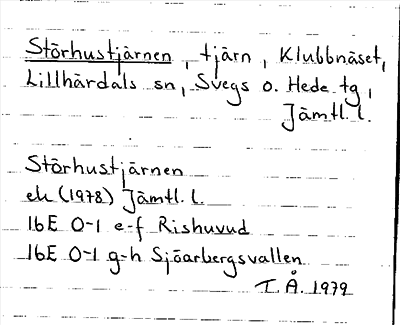 Störhustjärnen, tjärn, Klubbnäset,
Lillhärdals sn, Svegs o. Hede tg,
Jämtl. l.
Störhustjärnen
ek (1978) Jämtl. l.
16E 0-1 e-f Rishuvud
16E 0-1 g-h Sjöarbergsvallen
T. Å. 1979